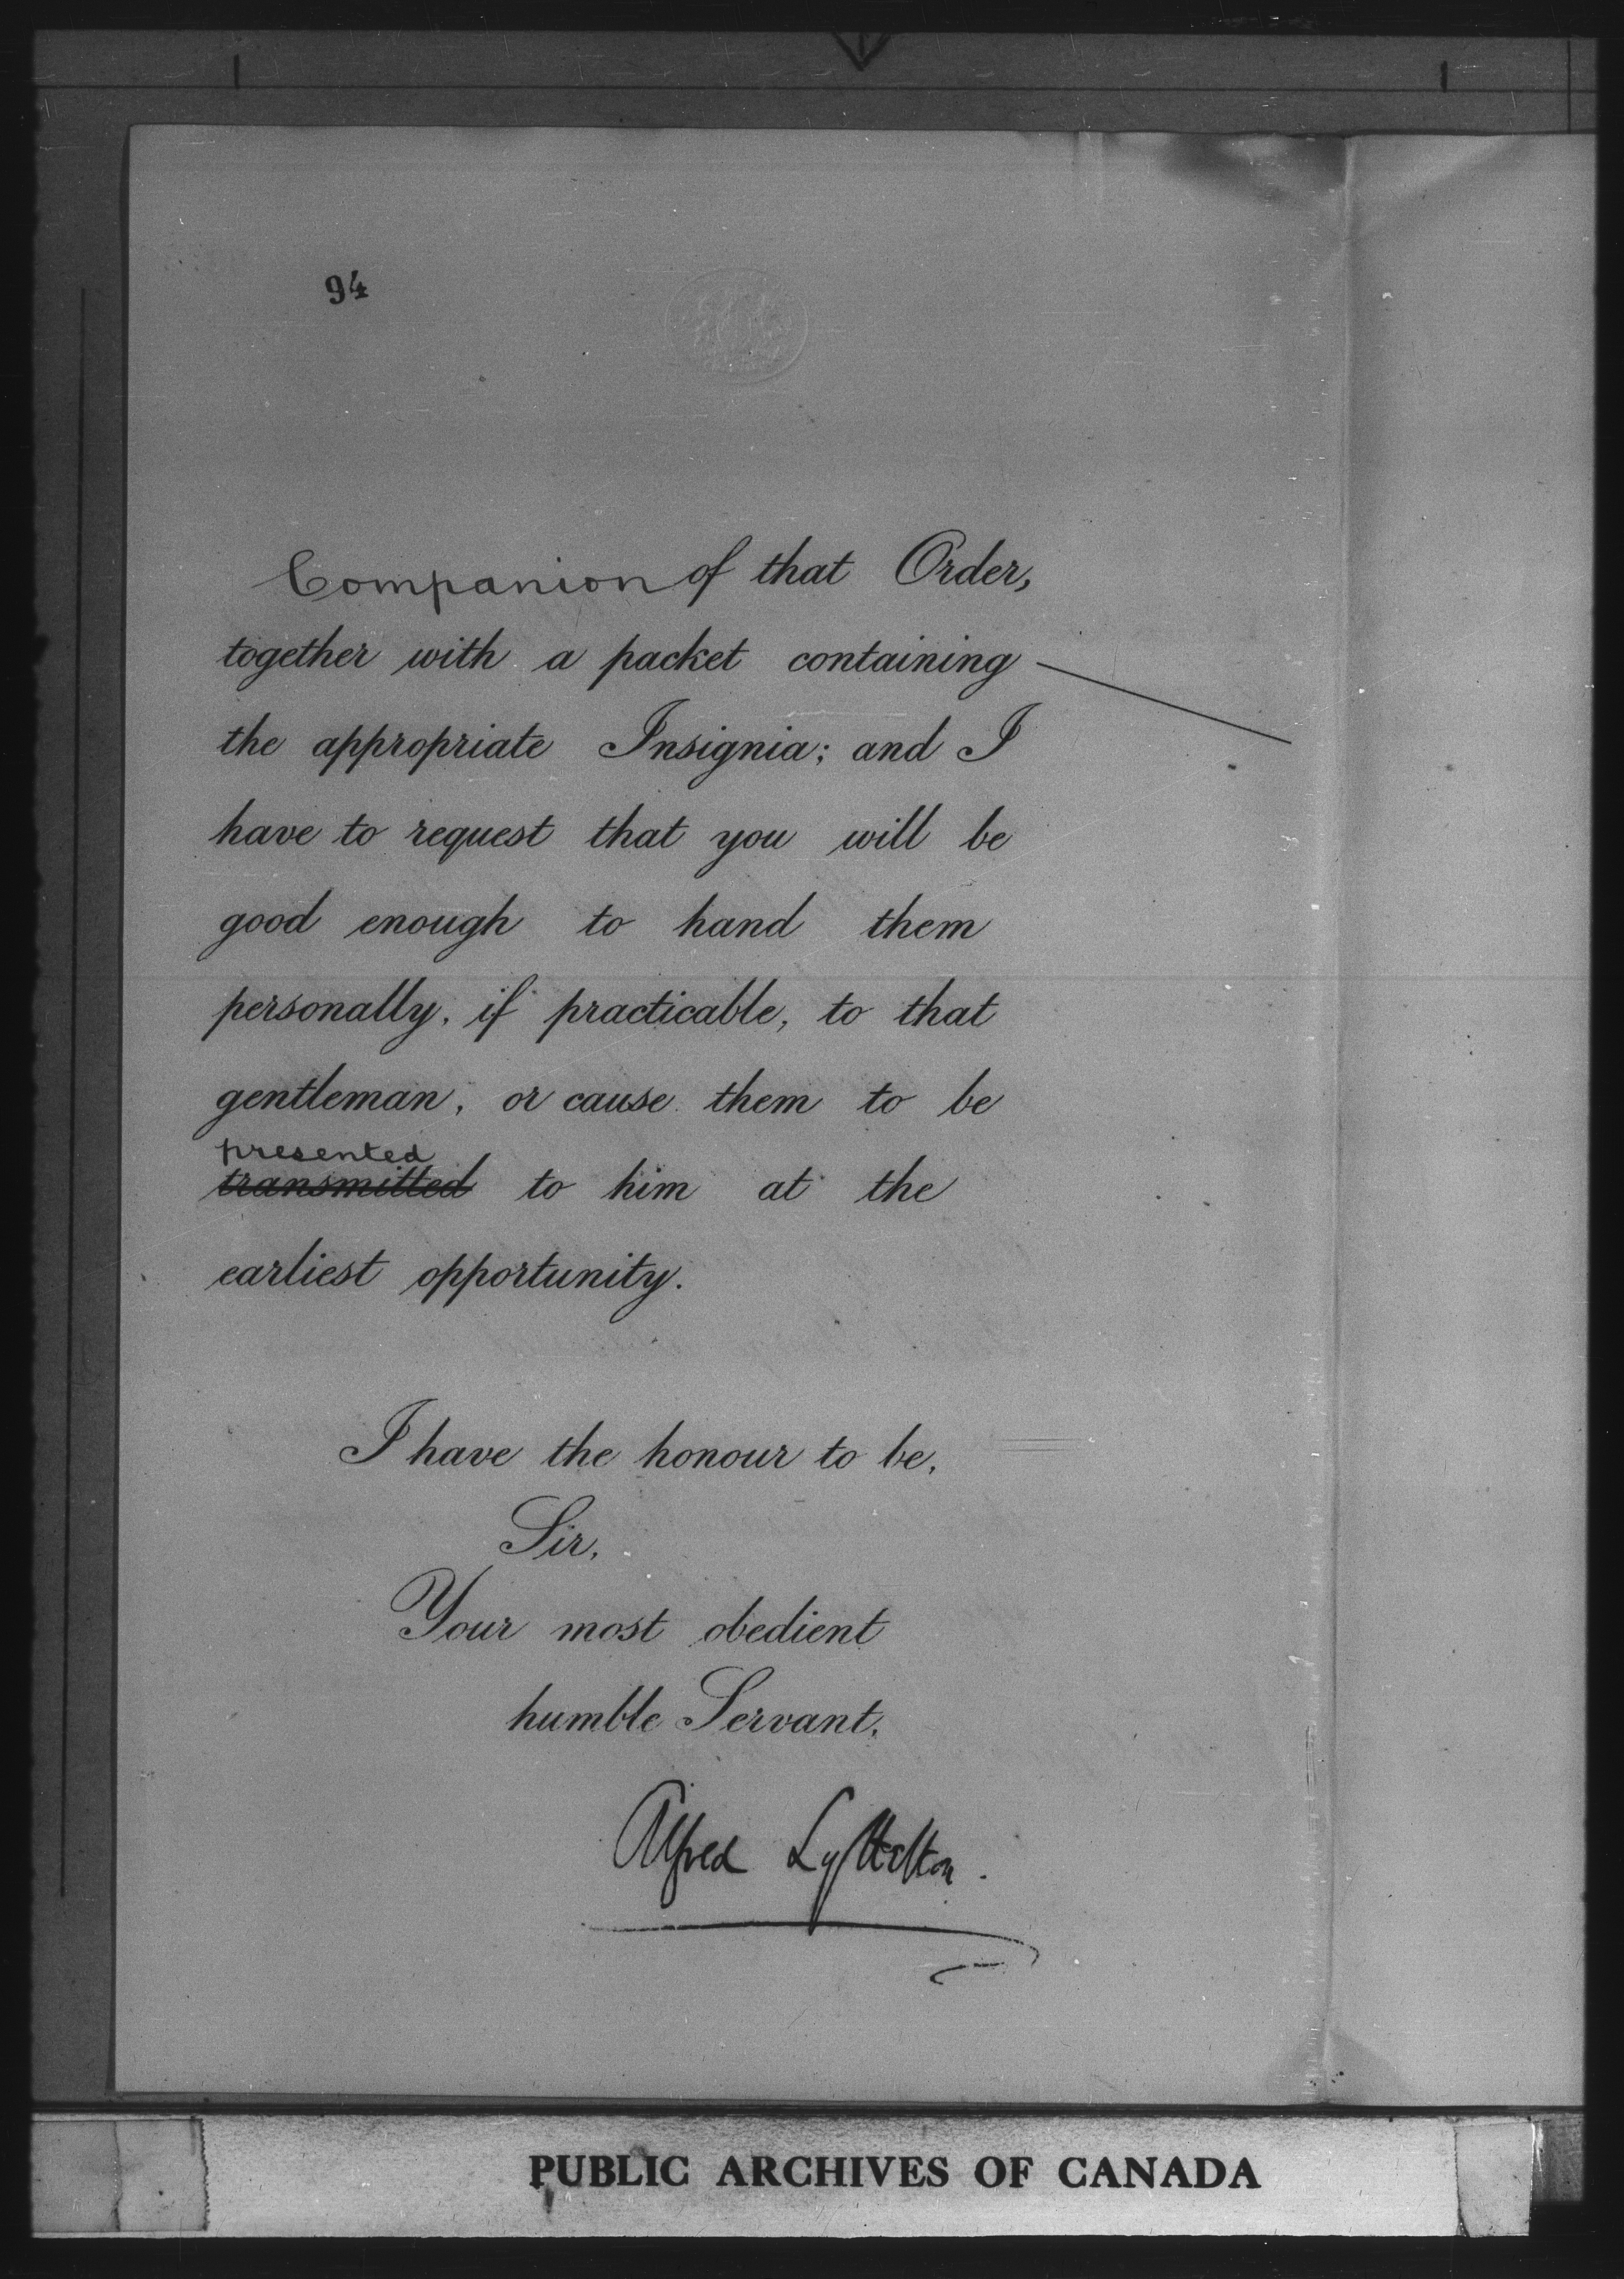 94
Companion of that Order,
together with a packet containing
the appropriate Insignia; and I
have to request that you will be
good enough to hand them
personally, if practicable, to that
gentleman, or cause them to be
presented
transmitted to him at the
earliest opportunity.
I have the honour to be,
Sir,
Your most obedient
humble Servant,
Alfred Lyttelton.
PUBLIC ARCHIVES OF CANADA